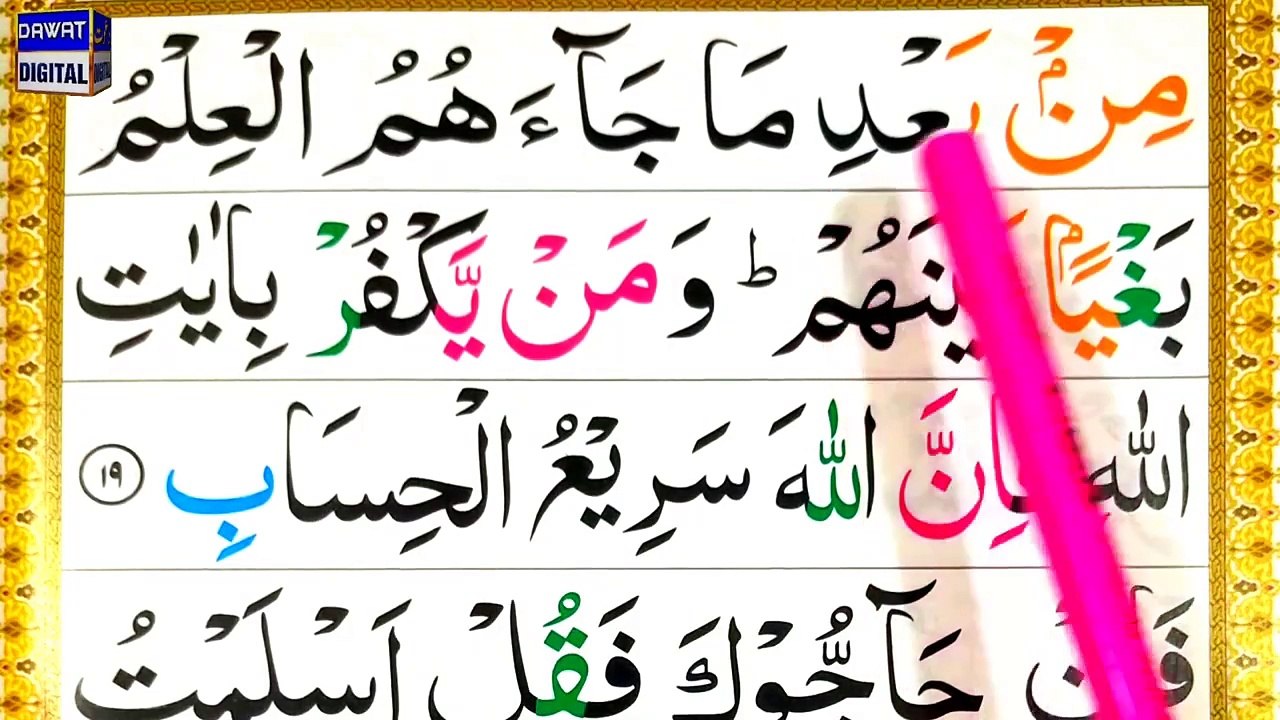 DAWAT
DIGITAL
مِنْۢ بَعْدِ مَا جَآءَهُمُ الْعِلْمُ
بَغْيًاۢ بَيْنَهُمْ ؕ وَمَنْ يَّكْفُرْ بِاٰيٰتِ
اللّٰهِ فَاِنَّ اللّٰهَ سَرِيْعُ الْحِسَابِ ١٩
فَاِنْ حَآجُّوْكَ فَقُلْ اَسْلَمْتُ